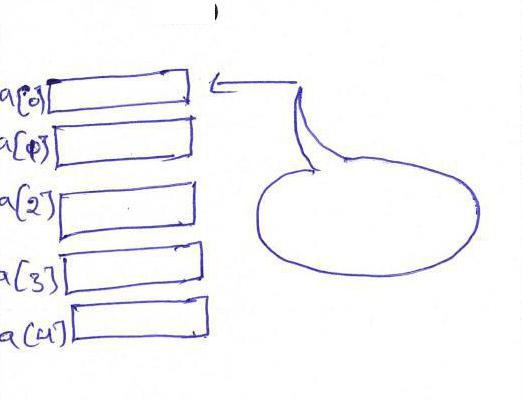 a[0]
a[1]
a[2]
a[3]
a[4]